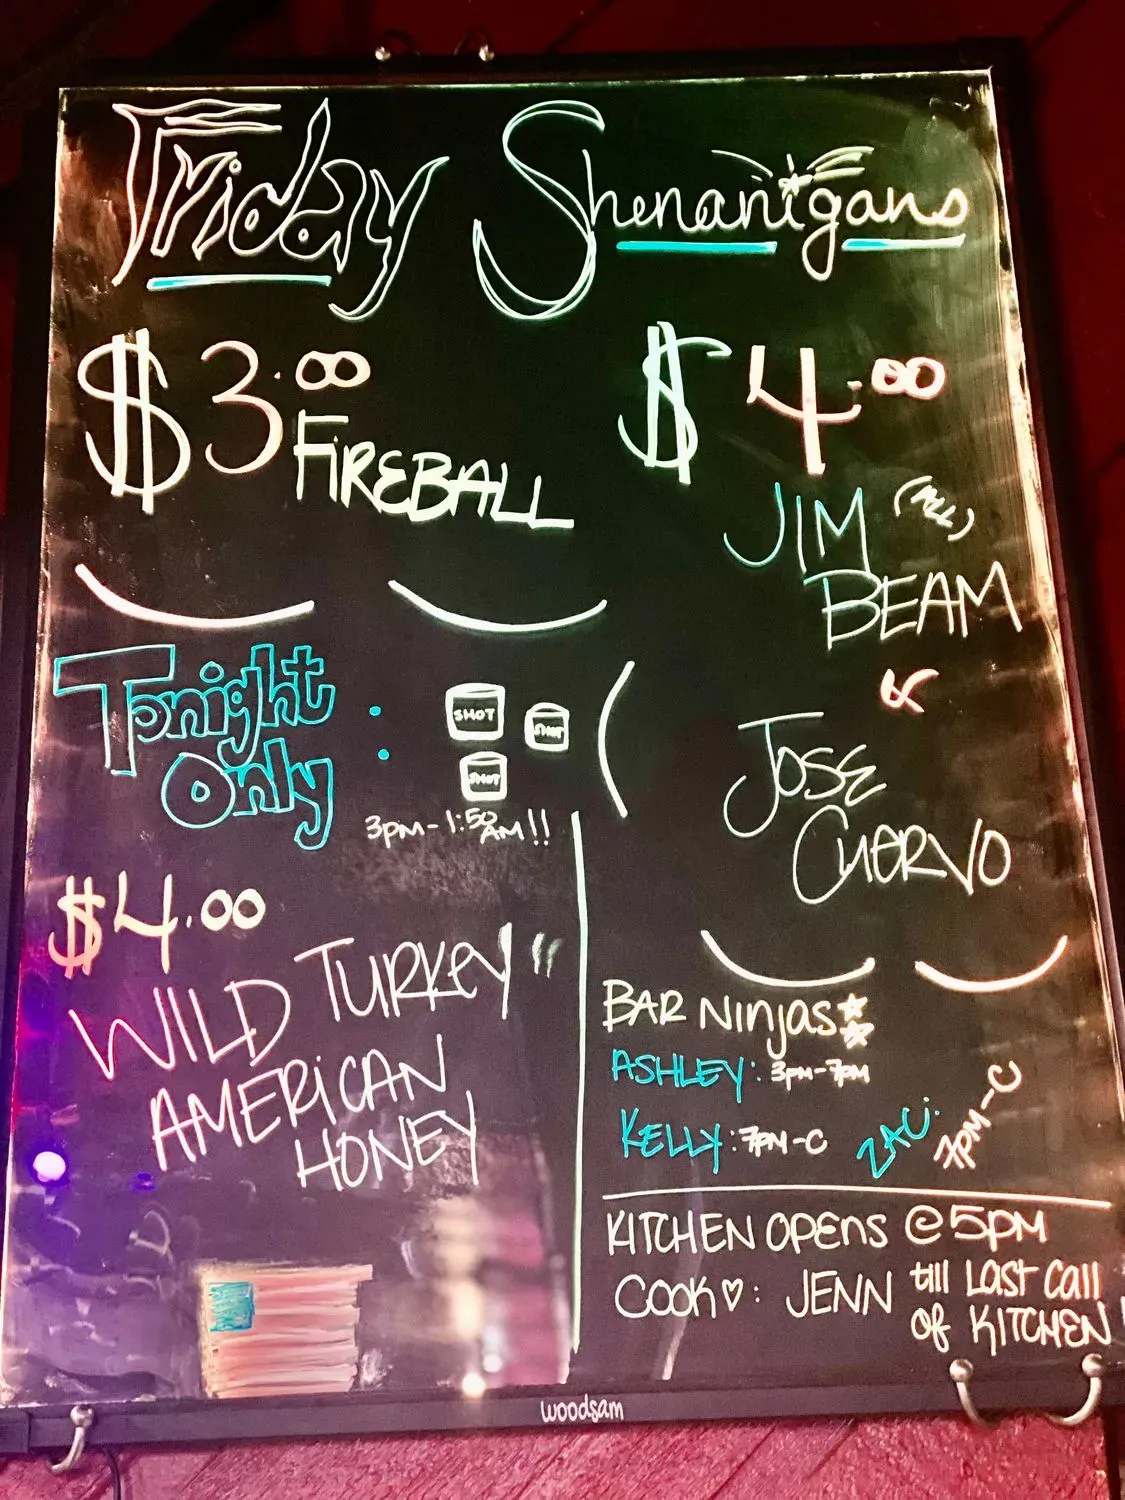 Friday Shenanigans
$3.00
FIREBALL
$4.00
JIM (ALL)
BEAM
&
JOSE
CUERVO
Tonight
Only :
SHOT
SHOT
SHOT
3PM-1:50
AM!!
$4.00
WILD TURKEY"
AMERICAN
HONEY
BAR NINJAS
ASHLEY: 3PM-7PM
KELLY: 7PM-C
ZAC: 7PM-C
KITCHEN OPENS @ 5PM
COOK♡: JENN till LAST Call
of KITCHEN
woodsam